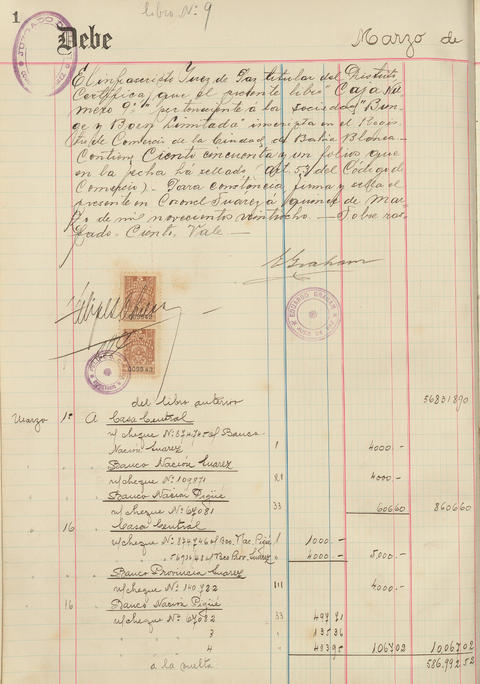 1
Libro N.º 9
Debe
Marzo de
El infrascripto Juez de Paz titular del Distrito
Certifica; que el presente libro "Caja Nú-
mero 9" perteneciente á la sociedad "Bun-
ge y Born Limitada" inscripta en el Regis-
tro de Comercio de la Ciudad de Bahia Blanca
Contiene Ciento cincuenta y un folios que
en la fecha há sellado (Art. 53 del Código de
Comercio). Para constancia, firma y sella el
presente en Coronel Suarez á quince de Mar-
zo de mil novecientos veintiocho. — Sobre ras-
pado = Ciento. Vale —
E Graham
EDUARDO GRAHAM
JUEZ DE PAZ
009543
009543
del libro anterior 568318 90
Marzo 1º A Casa Central
n/ cheque Nº 874745 s/ Banco
Nación Suarez 1 4000.-
Banco Nación Suarez
n/ cheque Nº 109871 4000.-
Banco Nación Pigüé
n/ cheque Nº 67081 33 606 60 8606 60
" 16 Casa Central
n/ cheque Nº 874746 s/ Bco. Nac. Pigüé 1 1000.-
s/ Bco Prov. Suarez " 4000.- 5000.-
Banco Provincia Suarez
n/ cheque Nº 140782 III 4000.-
" 16 Banco Nación Pigüé
n/ cheque Nº 67082 33 497 71
" " " 3 135 36
" " " 4 433 95 1067 02 10067 02
á la vuelta 586.992 52